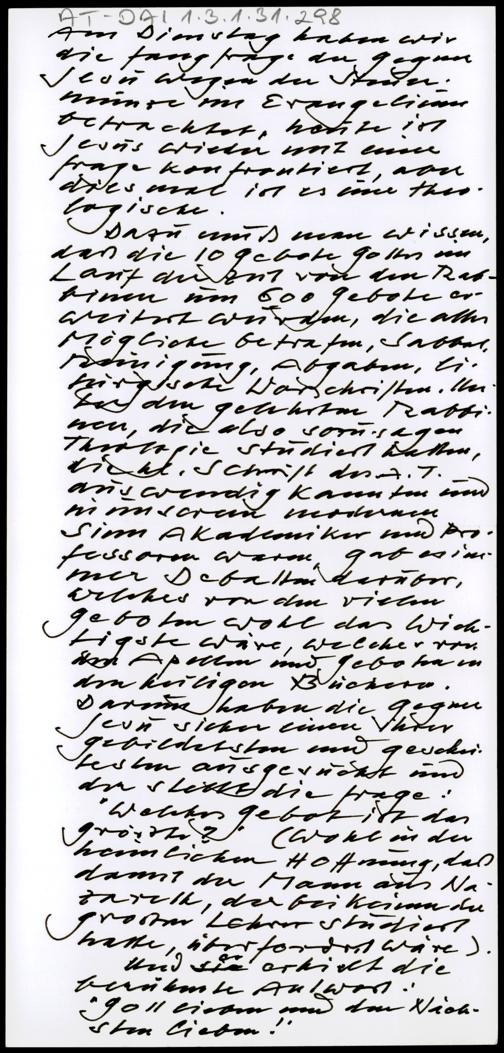 AT-DAI 1.3.1.31.298
Am Dienstag haben wir
die Fangfrage der Gegner
Jesu wegen der Steuer-
münze im Evangelium
betrachtet, heute ist
Jesus wieder mit einer
Frage konfrontiert, aber
diesmal ist es eine theo-
logische.
Dazu muß man wissen,
daß die 10 Gebote Gottes im
Lauf der Zeit von den Rab-
binen um 600 Gebote er-
weitert wurden, die alles
Mögliche betrafen, Sabbat,
Reinigung, Abgaben, li-
turgische Vorschriften. Un-
ter den gelehrten Rabbi-
nen, die also sozusagen
Theologie studiert hatten,
die hl. Schrift des A.T.
auswendig kannten und
in unserem modernen
Sinn Akademiker und Pro-
fessoren waren, gab es im-
mer Debatten darüber,
welches von den vielen
Geboten wohl das Wich-
tigste wäre, welches von
den Apellen und Geboten in
den heiligen Büchern.
Darum haben die Gegner
Jesu sicher einen ihrer
gebildetsten und geschei-
testen ausgesucht und
der stellt die Frage:
"Welches Gebot ist das
größte?" (Wohl in der
heimlichen Hoffnung, daß
damit der Mann aus Na-
zareth, der bei keinem der
großen Lehrer studiert
hatte, überfordert wäre).
Und er erhielt die
berühmte Antwort:
"Gott lieben und den Näch-
sten lieben!"